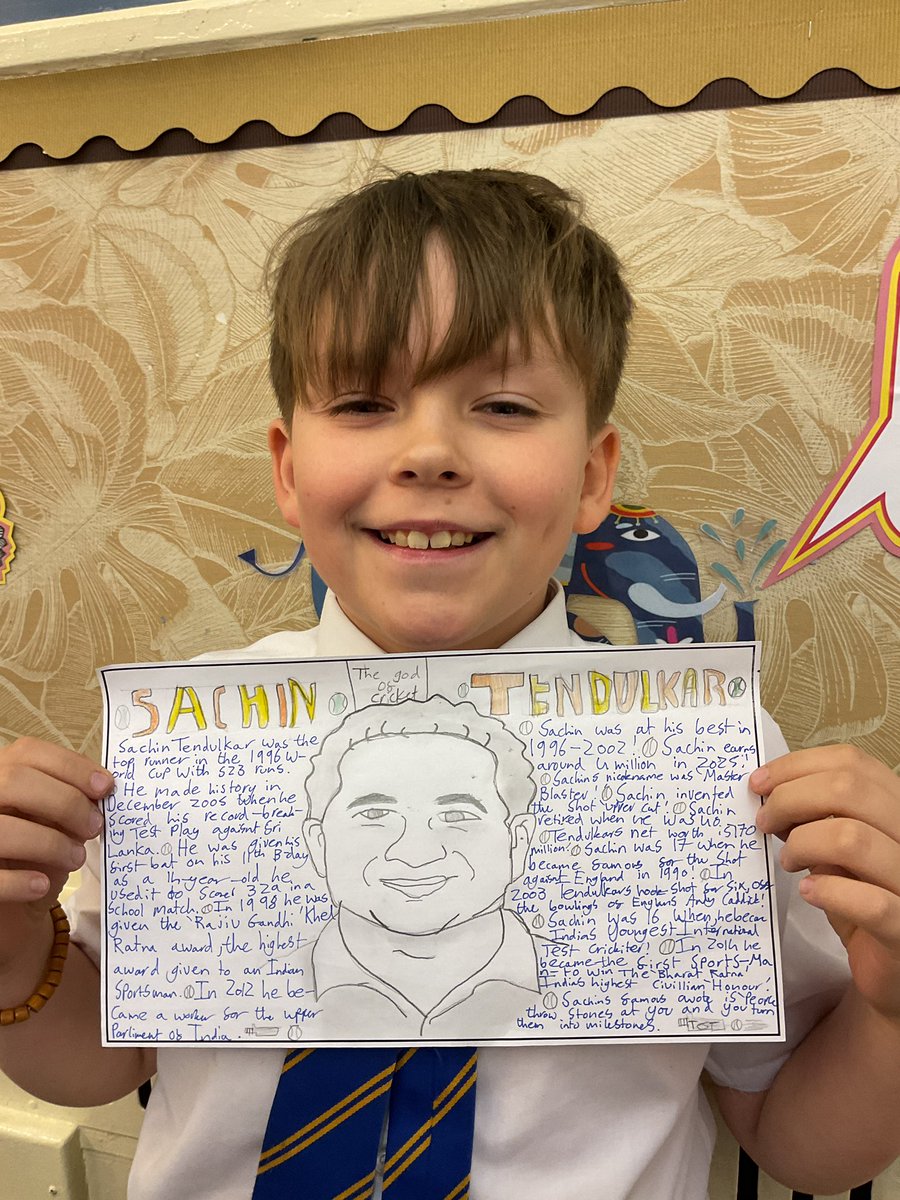 SACHIN
The god
of
cricket
TENDULKAR
Sachin Tendulkar was the
top runner in the 1996 W-
orld Cup with 523 runs.
He made history in
December 2005 when he
scored his record-break-
ing Test Play agaisnt Sri
Lanka. He was given his
first bat on his 11th B-day
as a 14-year-old he
used it to score 329 in a
school match. In 1998 he was
given the Rajiv Gandhi Khel
Ratna award, the highest
award given to an Indian
Sportsman. In 2012 he be-
came a worker for the upper
Parliment of India.
Sachin was at his best in
1996-2002! Sachin earns
around 4 million in 2025!
Sachins nickname was Master
Blaster! Sachin invented
the shot upper cut! Sachin
retired when he was 40.
Tendulkars net worth is 170
million! Sachin was 17 when he
became famous for the shot
against England in 1990! In
2003 Tendulkars hook shot for six, off
the bowlings of Englans Andy Caddick!
Sachin was 16 when he became
Indias Youngest International
Test Crickiter! In 2014 he
became the first Sports-Ma
n- to win The Bharat Ratna
Indias highest Civillian Honour!
Sachins famous quote is People
throw stones at you and you turn
them into milestones.